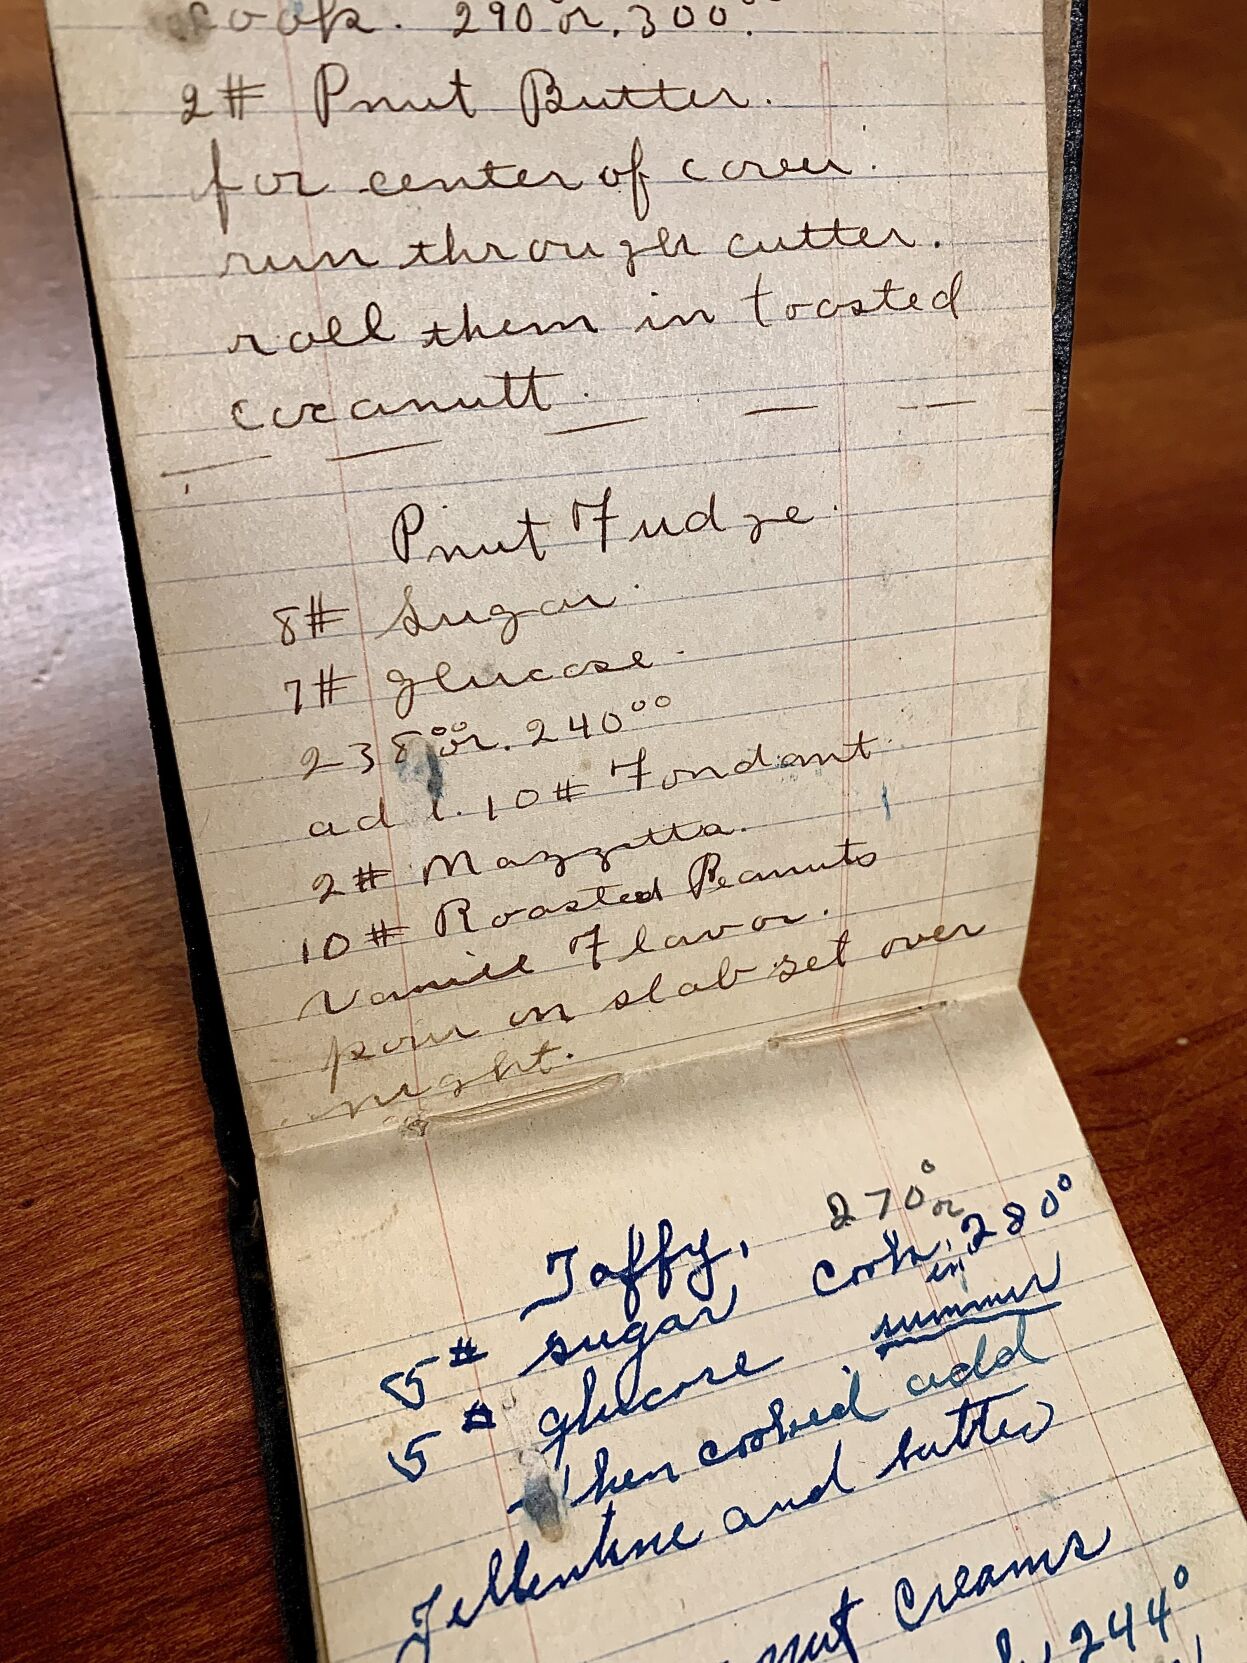 cook. 290° or. 300°.
2# Pnut Butter.
for center of cover.
run through cutter.
roll them in toasted
cocanutt.
Pnut Fudge.
8# Sugar.
7# glucose.
238°° or. 240°°
ad 1. 10# Fondant.
2# Mazzetta.
10# Roasted Peanuts
Vanill Flavor.
pour on slab set over
night.
Taffy, 270° or
5# sugar cook, 280°
in
5# glucose summer
When cooked add
Jellentine and butter
nut Creams
244°